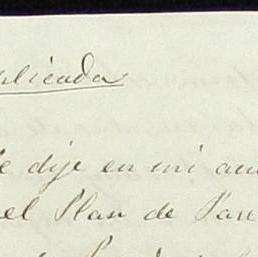 plicada
e dije en mi an
el Plan de San